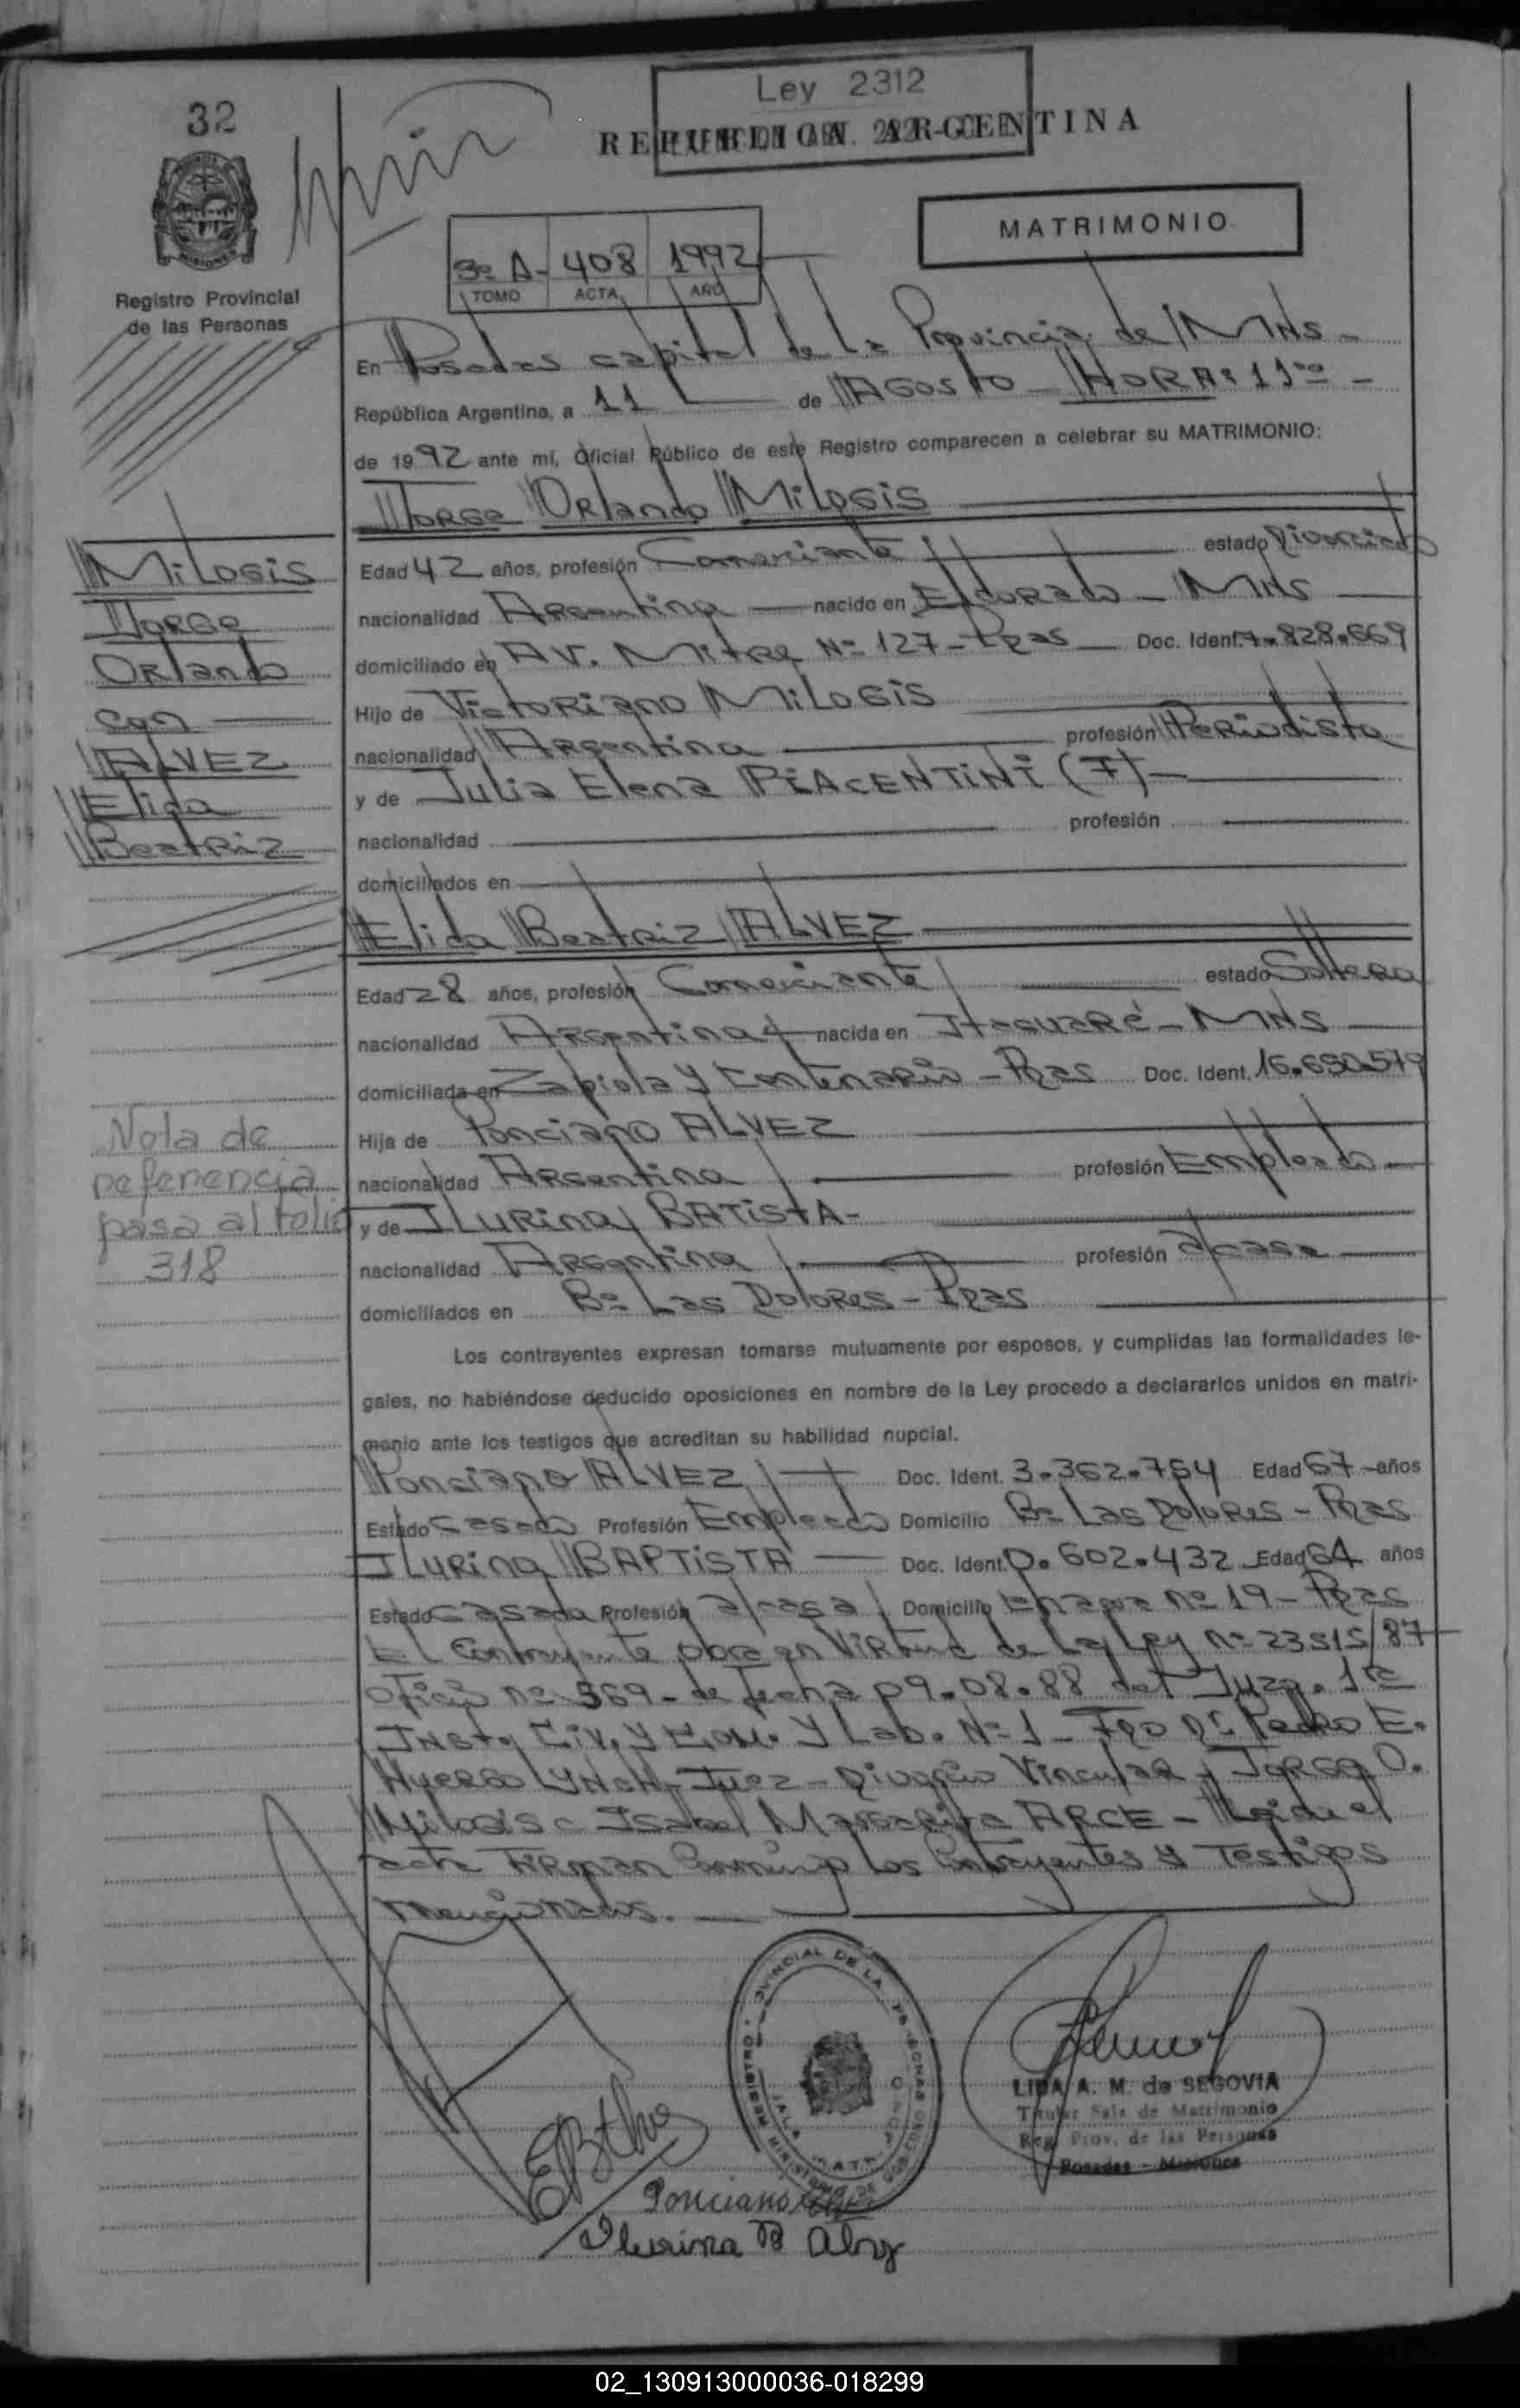 Ley 2312
32
REPUBLICA ARGENTINA
MATRIMONIO
3º A- 408 1992
TOMO ACTA AÑO
Registro Provincial
de las Personas
En Posadas capital de la Provincia de Mns-
República Argentina, a 11 de AGosto - HORA: 11
de 1992 ante mí, Oficial Público de este Registro comparecen a celebrar su MATRIMONIO:
Jorge Orlando Milosis
Milosis
Jorge
Orlando
con
ALVEZ
Elida
Beatriz
Edad 42 años, profesión Comerciante estado Divorciado
nacionalidad Argentina nacido en Eldorado - Mns
domiciliado en AV. Mitre Nº 127 - Pzas Doc. Ident. 7.828.669
Hijo de Victoriano Milosis
nacionalidad Argentina profesión Periodista
y de Julia Elena PiACENTiNi (F)
nacionalidad profesión
domiciliados en
Elida Beatriz ALVEZ
Edad 28 años, profesión Comerciante estado Soltera
nacionalidad Argentina nacida en Itacuaré - Mns
domiciliada en Zapiola y Centenario - Pzas Doc. Ident. 16.690.579
Hija de Ponciano ALVEZ
nacionalidad Argentina profesión Empleado
y de ILurina BATistA-
nacionalidad Argentina profesión a/casa
domiciliados en Bº Las Dolores - Pzas
Nota de
referencia
pasa al folio
318
Los contrayentes expresan tomarse mutuamente por esposos, y cumplidas las formalidades le-
gales, no habiéndose deducido oposiciones en nombre de la Ley procedo a declararlos unidos en matri-
monio ante los testigos que acreditan su habilidad nupcial.
Ponciano ALVEZ Doc. Ident. 3.362.764 Edad 67 años
Estado casado Profesión Empleado Domicilio Bº Las Dolores - Pzas
ILurina BAPTiSTA Doc. Ident. 0.602.432 Edad 64 años
Estado casada Profesión a/casa Domicilio Chacra Nº 19 - Pzas
El Contrayente obra en Virtud de la Ley Nº 23515/87
Oficio nº 569- de fecha 09.08.88 del Juzg. 1ra
Inst. Civ. y Com. y Lab. Nº 1 - FDO Dr. Pedro E.
Huergo Lynch Juez - Divorcio Vincular, Jorge O.
Milosis c Isabel Margarita ARCE - Leida el
acta Firman Conmigo los Contrayentes y Testigos
mencionados.
LIDIA A. M. de SEGOVIA
Titular Sala de Matrimonio
Reg. Prov. de las Personas
Posadas - Misiones
Ponciano
Ilurina B Alvz
02_130913000036-018299